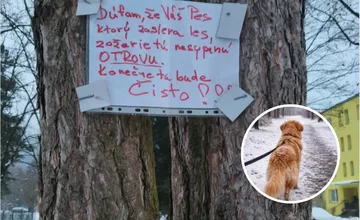 Dúfam, že Váš Pes
ktorý zasiera les,
zožerie tú nasypanú
OTRAVU.
Konečne tu bude
Čisto !!!